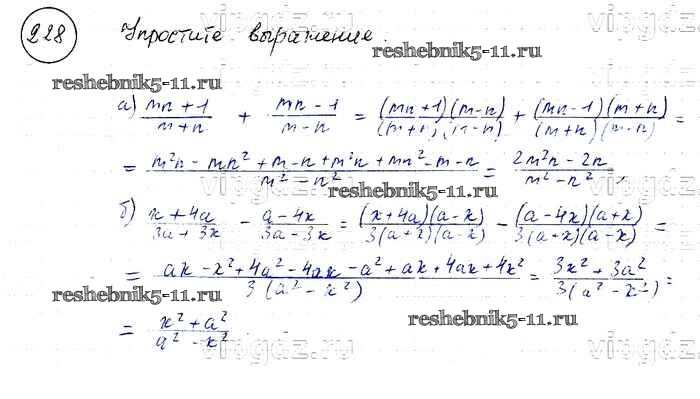 228 Упростите выражение.
reshebnik5-11.ru
reshebnik5-11.ru
а) (mn+1)/(m+n) + (mn-1)/(m-n) = (mn+1)(m-n)/(m+n)(m-n) + (mn-1)(m+n)/(m+n)(m-n) =
= (m²n - mn² + m - n + m²n + mn² - m - n)/(m² - n²) = (2m²n - 2n)/(m² - n²),
reshebnik5-11.ru
б) (x+4a)/(3a+3x) - (a-4x)/(3a-3x) = (x+4a)(a-x)/3(a+x)(a-x) - (a-4x)(a+x)/3(a+x)(a-x) =
= (ax - x² + 4a² - 4ax - a² + ax + 4ax + 4x²)/3(a² - x²) = (3x² + 3a²)/3(a² - x²) =
reshebnik5-11.ru
= (x² + a²)/(a² - x²)
reshebnik5-11.ru